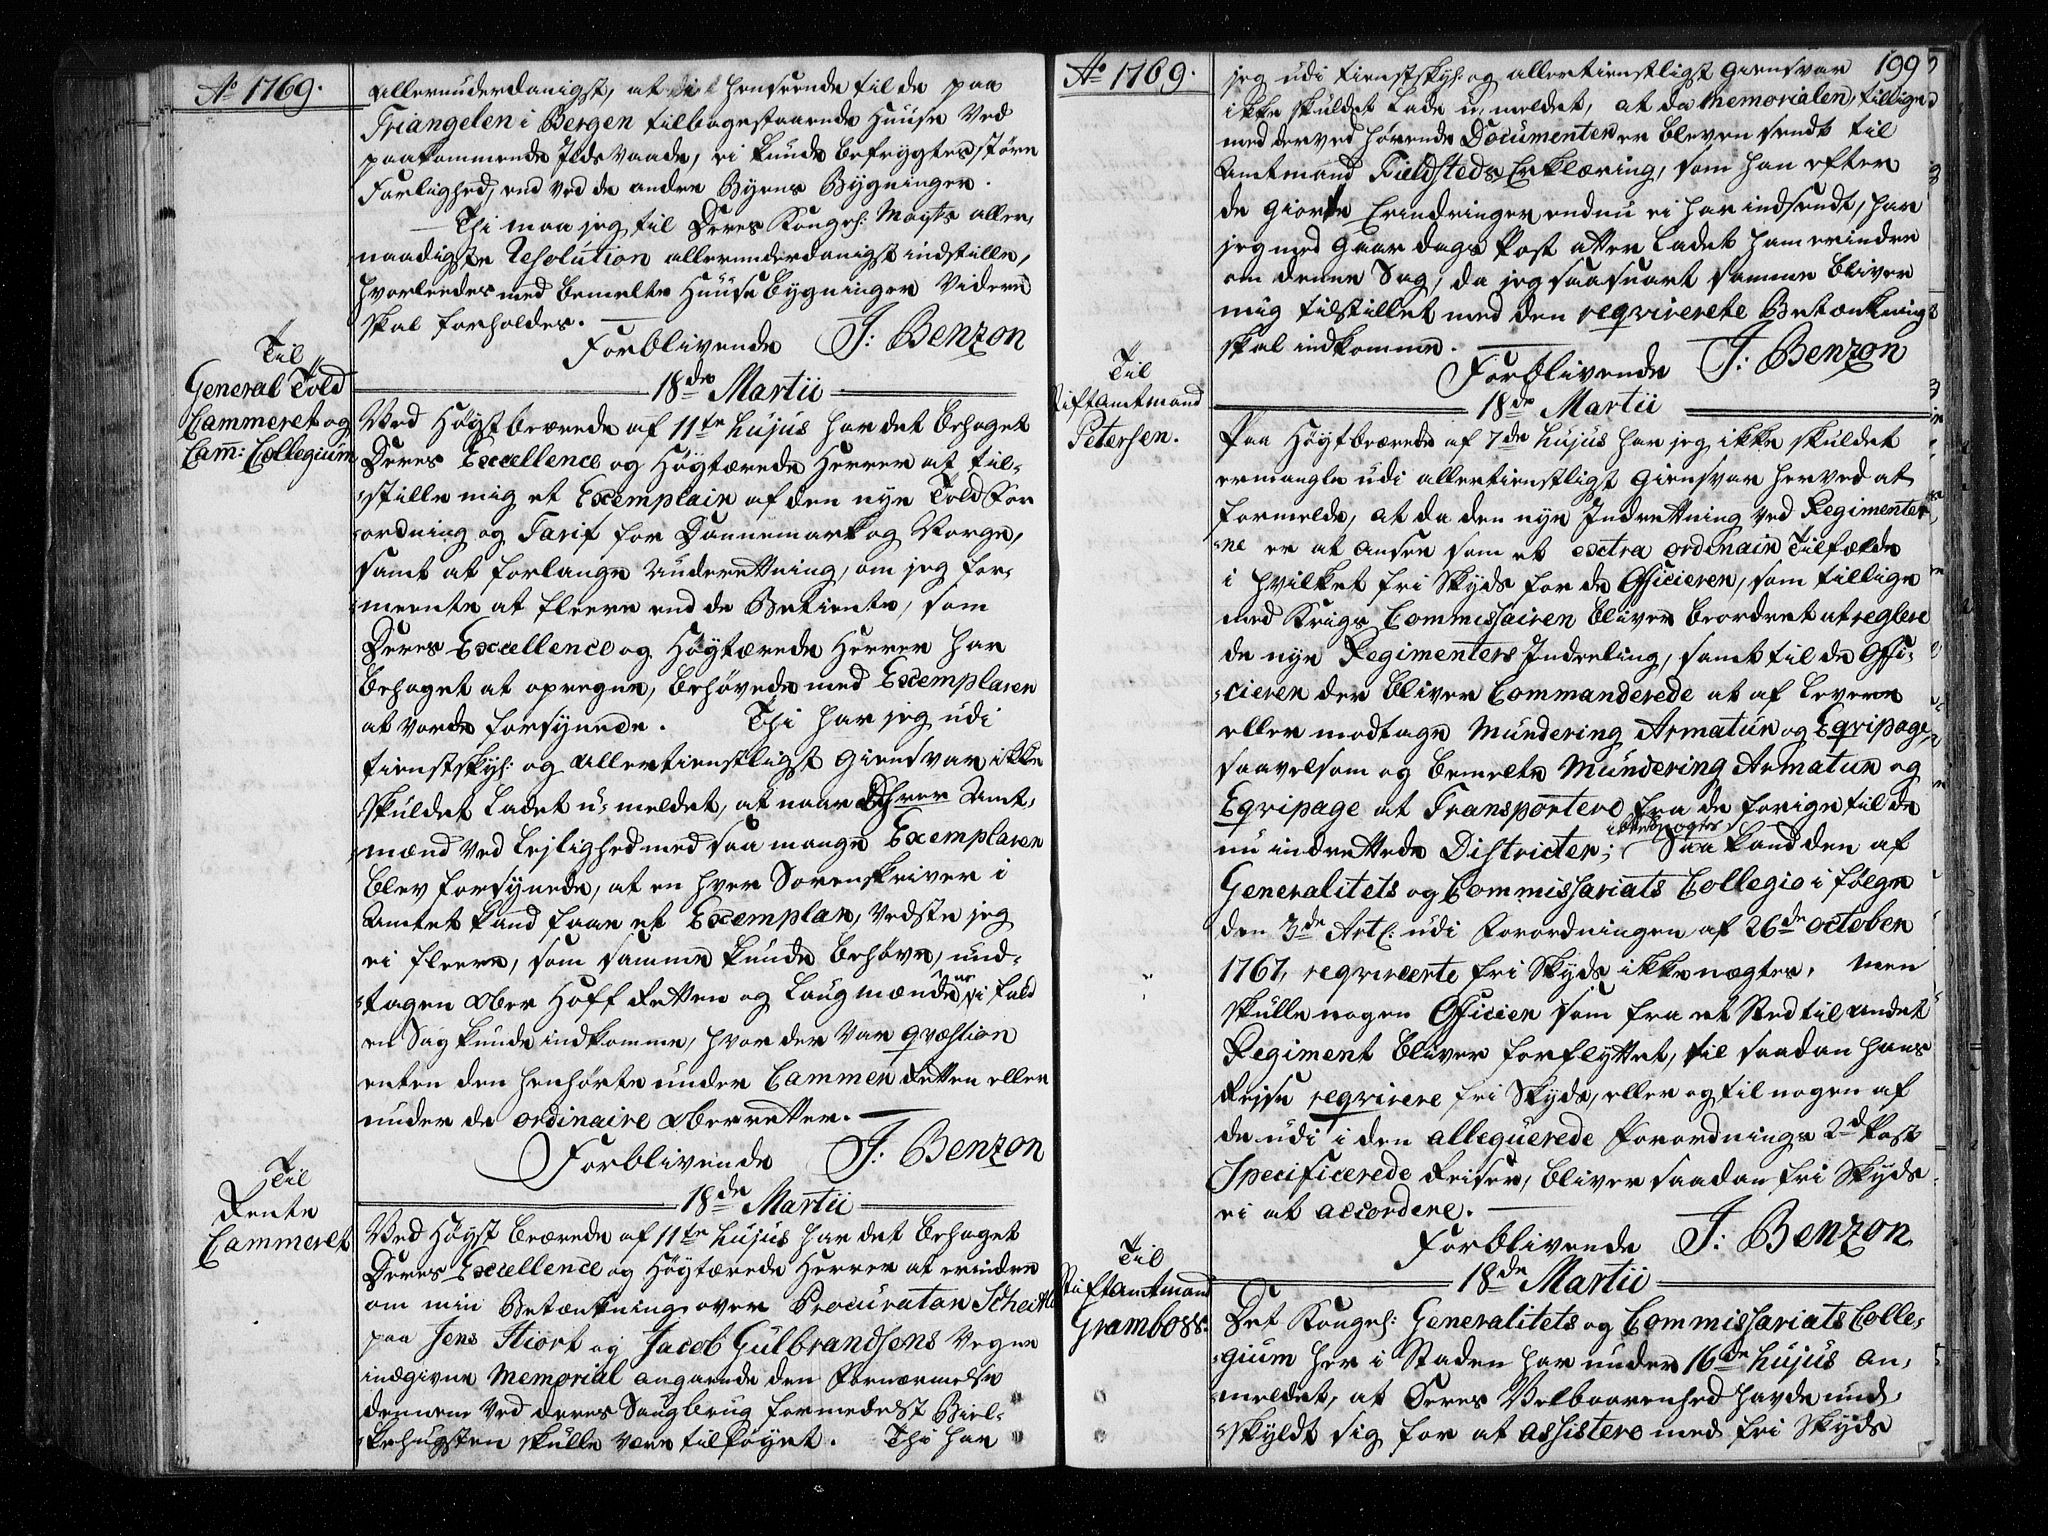 Ao 1769.
allerunderdanigst, at i henseende til de paa
Triangelen i Bergen tilbagestaaende Huuse Ved
paakommende Ilds Vaade, ei kunde befrygtes större
Farlighed, end ved de andre Byens Bygninger.
Thi maa jeg til Deres Kongel: Mayts aller-
naadigste Resolution allerunderdanigst indstille,
hvorleedes med bemelte Huuse bygninger Videre
skal forholdes.
Forblivende J: Benzon
Til
General Told
Cammeret og
Cam: Collegium
18de Martii
Ved Høystbeærede af 11te hujus har det behaget
Deres Excellence og Høytærede Herrer at til-
stille mig et Exemplair af den nye Told For
ordning og Tarif for Dannemark og Norge,
samt at forlange Underetning, om jeg for-
meente at fleere end de Betiente, som
Deres Excellence og Høytærede Herrer har
behaget at opregne, behövede med Exemplarer
at vorde forsynede. Thi har jeg udi
tienstskyl: og allertienstligst Giensvar ikke
skuldet ladet u-meldet, at naar Enhver Amt-
mænd ved Lejlighed med saa mange Exemplarer
blev forsynede, at en hver Sorenskriver i
Amtet kand faae et Exemplar, vedste jeg
ei fleere, som samme kunde behöve, und-
tagen Ober Hoff Retten og Laugmændene, i fald
en Sag kunde indkomme, hvor der var qvæstion
enten den henhörte under Cammer Retten eller
under de ordinaire Oberretter.
Forblivende J: Benzon
Til
Rente
Cammeret
18de Martii
Ved Høyst beærede af 11te hujus har det behaget
Deres Excellence og Høytærede Herrer at erindre
om min Betænkning over Procurator Scheitli
paa Jens Stiort og Jacob Gulbrandsens Vegne
indgivne Memorial angaaende den Fornærmelse
dennem ved deres Saugbrug formedelst Biel-
kehugsten skulle være tilføyet. Thi har
Ao 1769.
199
jeg udi tienstskyl: og allertienstligst Giensvar
ikke skuldet lade u-meldet, at da Memorialen, tillige
med derved hörende Documenter er bleven sendt til
Amtmand Fieldsteds Erklæring, som han efter
de giorte Erindringer endnu ei har indsendt, har
jeg med Gaar dags Post atter ladet ham erindre
om denne Sag, da jeg saasnart samme bliver
mig tilstillet med den reqvirerete Betænkning
skal indkomme.
Forblivende J: Benzon
Til
Stiftamtmand
Petersen.
18de Martii
Paa Høystbeærede af 7de hujus har jeg ikke skuldet
ermangle udi allertienstligst Giensvar herved at
formelde, at da den nye Indretning ved Regimenter
ne er at ansee som et extra ordinair Tilfælde
i hvilket fri Skyds for de Officierer, som tillige
med Krigs Commissairen bliver beordret at reglere
de nye Regimenters Indeeling, samt til de Offi-
cierer der bliver Commanderede at af levere
eller modtage Mundering Armatur og Eqvipage,
saavelsom og bemelte Mundering Armatur og
Eqvipage at Transportere fra de forige til de
nu indrettede Districter; Saa kand den af
ikke nægtes
Generalitets og Commissariats Collegio i følge
den 3de Artl: udi Forordningen af 26de October
1767, reqvirerete fri Skyds ikke nægtes, men
skulle nogen Officier som fra et Sted til andet
Regiment bliver forflyttet, til saadan hans
Rejse reqvirere fri Skyds, eller og til nogen af
de udi i den allequerede Forordnings 2d Post
Specificerede Reiser, bliver saadan fri Skyds
ei at accordere.
Forblivende J: Benzon
Til
Stiftamtmand
Grambow.
18de Martii
Det Kongel: Generalitets og Commissariats Colle-
gium her i Staden har under 16de hujus an-
meldet, at Deres Velbaarenhed havde und-
skyldt sig for at assistere med fri Skyds